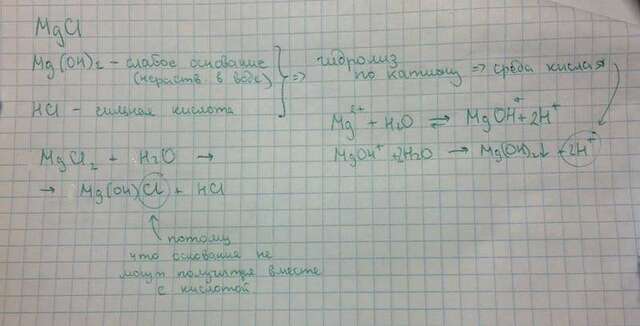 MgCl
Mg(OH)₂ – слабое основание
(нераств. в воде)
HCl – сильная кислота
⇒ гидролиз
по катиону ⇒ среда кислая
Mg²⁺ + H₂O ⇌ MgOH⁺ + 2H⁺
MgOH⁺ + 2H₂O → Mg(OH)₂↓ + 2H⁺
MgCl₂ + H₂O →
→ Mg(OH)Cl + HCl
потому
что основание не
могут получится вместе
с кислотой